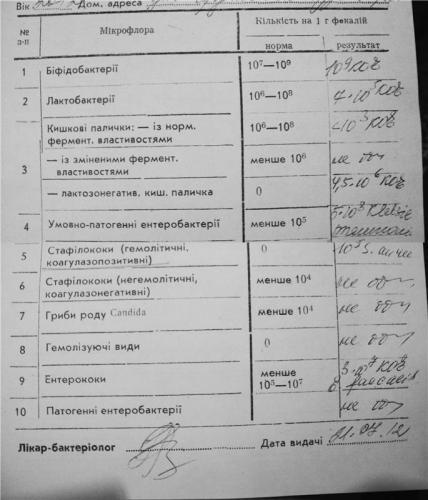 Вік Дом. адреса
№ п-п Мікрофлора Кількість на 1 г фекалій
норма результат
1 Біфідобактерії 10⁷—10⁹ 10⁹ КОЕ
2 Лактобактерії 10⁶—10⁸ 4·10⁵ КОЕ
3 Кишкові палички: — із норм. фермент. властивостями 10⁶—10⁸ <10⁵ КОЕ
— із зміненими фермент. властивостями менше 10⁶ не
— лактозонегатив. киш. паличка 0 4,5·10⁶ КОЕ
4 Умовно-патогенні ентеробактерії менше 10⁵
5 Стафілококи (гемолітичні, коагулазопозитивні) 0
6 Стафілококи (негемолітичні, коагулазонегативні) менше 10⁴ не
7 Гриби роду Candida менше 10⁴ не
8 Гемолізуючі види 0 не
9 Ентерококи менше 10⁵—10⁷
10 Патогенні ентеробактерії не
Лікар-бактеріолог Дата видачі